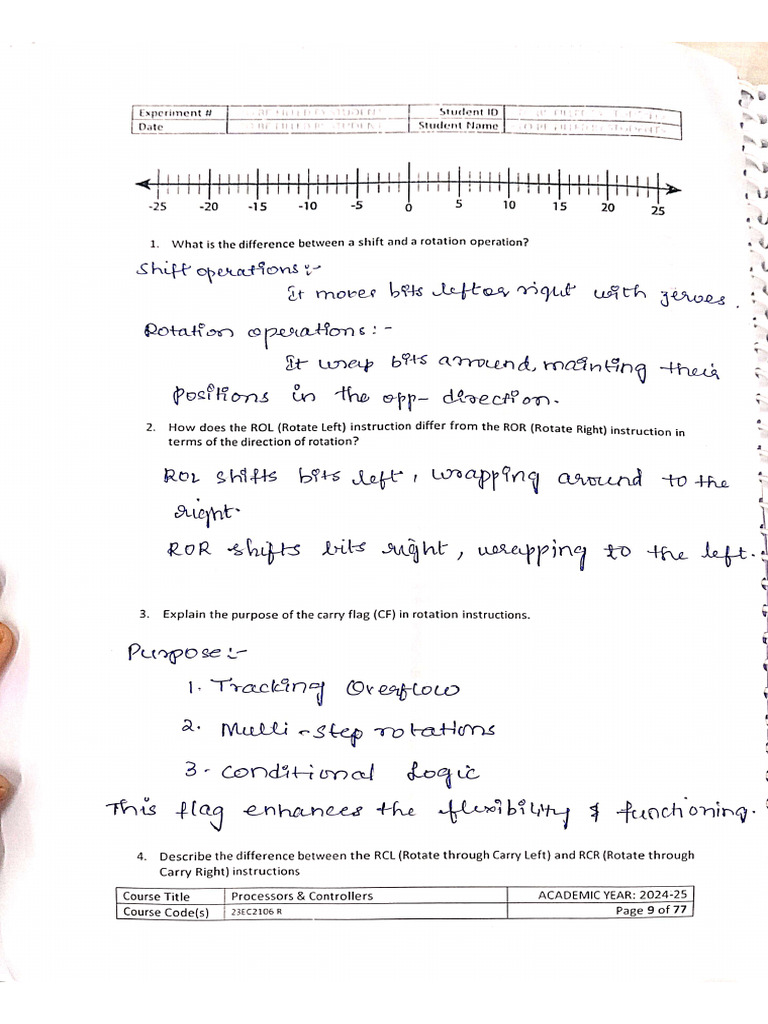 Experiment # Student ID
Date Student Name
-25 -20 -15 -10 -5 0 5 10 15 20 25
1. What is the difference between a shift and a rotation operation?
Shift operations:-
It moves bits left or right with zeroes.
Rotation operations:-
It wrap bits arround, mainting their
positions in the opp- direction.
2. How does the ROL (Rotate Left) instruction differ from the ROR (Rotate Right) instruction in
terms of the direction of rotation?
ROL shifts bits left, wrapping around to the
right.
ROR shifts bits right, wrapping to the left.
3. Explain the purpose of the carry flag (CF) in rotation instructions.
Purpose:-
1. Tracking Overflow
2. Multi-step rotations
3. Conditional Logic
This flag enhances the flexibility & functioning.
4. Describe the difference between the RCL (Rotate through Carry Left) and RCR (Rotate through
Carry Right) instructions
Course Title Processors & Controllers ACADEMIC YEAR: 2024-25
Course Code(s) 23EC2106 R Page 9 of 77